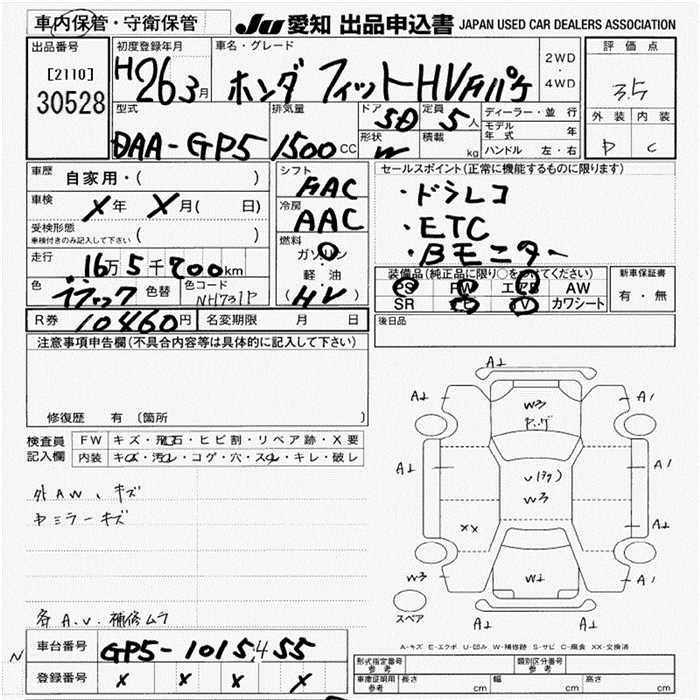 車内保管・守衛保管
JU 愛知 出品申込書 JAPAN USED CAR DEALERS ASSOCIATION
出品番号
[2110]
30528
初度登録年月
H26 3月
車名・グレード
ホンダ フィットHV
2WD
・
4WD
評価点
3.5
外装 内装
D C
型式
DAA-GP5
排気量
1500 CC
ドア
5D
定員
5人
形状
W
積載
kg
ディーラー・並行
モデル年式 年
ハンドル 左・右
車歴
自家用・( )
車検
X年 X月( 日)
受検形態
車検付きのみ記入して下さい ( )
走行
16万5千700km
色
ブラック
色替
色コード
NH731P
シフト
FAC
冷房
AAC
燃料
ガソリン
・
軽油
(HV)
セールスポイント(正常に機能するものに限ります)
・ドラレコ
・ETC
・Bモニター
装備品(純正品に限り○をつけてください)
PS PW エアB AW
SR ナビ TV カワシート
新車保証書
有・無
R券 10460円
名変期限 月 日
後日品
注意事項申告欄(不具合内容等は具体的に記入して下さい)
修復歴 有 〔箇所 〕
検査員記入欄
FW キズ・飛石・ヒビ割・リペア跡・X要
内装 キズ・汚れ・コゲ・穴・スレ・キレ・破レ
外AW、キズ
ミラーキズ
各A.U.補修ムラ
A1
A2
A1
W3
A2
A1
U(3ケ)
W3
XX
A2
W3
W2
A1
スペア
A-キズ E-エクボ U-凹ミ W-補修跡 S-サビ C-腐食 XX-交換済
N
車台番号 GP5-1015455
登録番号 X X X X
形式指定番号
参考
類別区分番号
参考
車庫証明用
参考
長さ cm
幅 cm
高さ cm